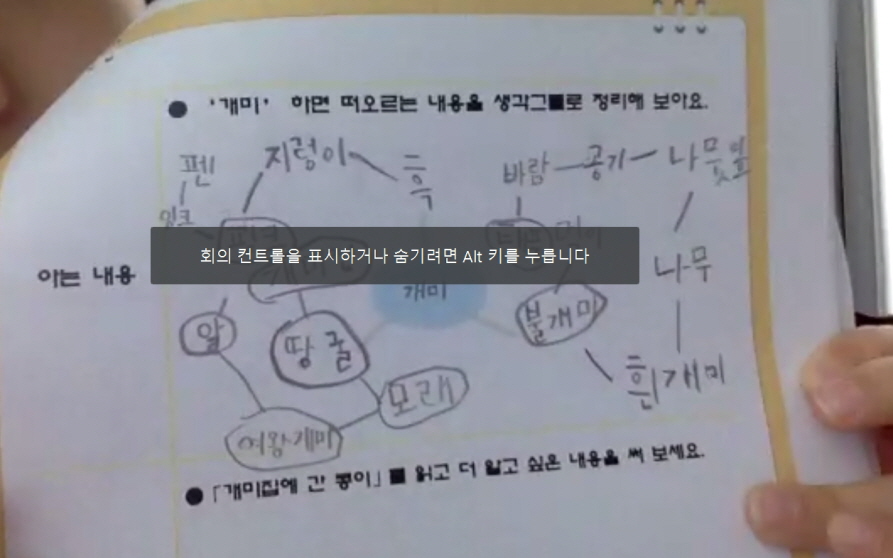 ● '개미' 하면 떠오르는 내용을 생각그물로 정리해 보아요.
펜 지렁이 흙 바람 공기 나무잎
잉크
회의 컨트롤을 표시하거나 숨기려면 Alt 키를 누릅니다
아는 내용 나무
개미
알 땅굴 불개미
모래 흰개미
여왕개미
● 「개미집에 간 콩이」를 읽고 더 알고 싶은 내용을 써 보세요.